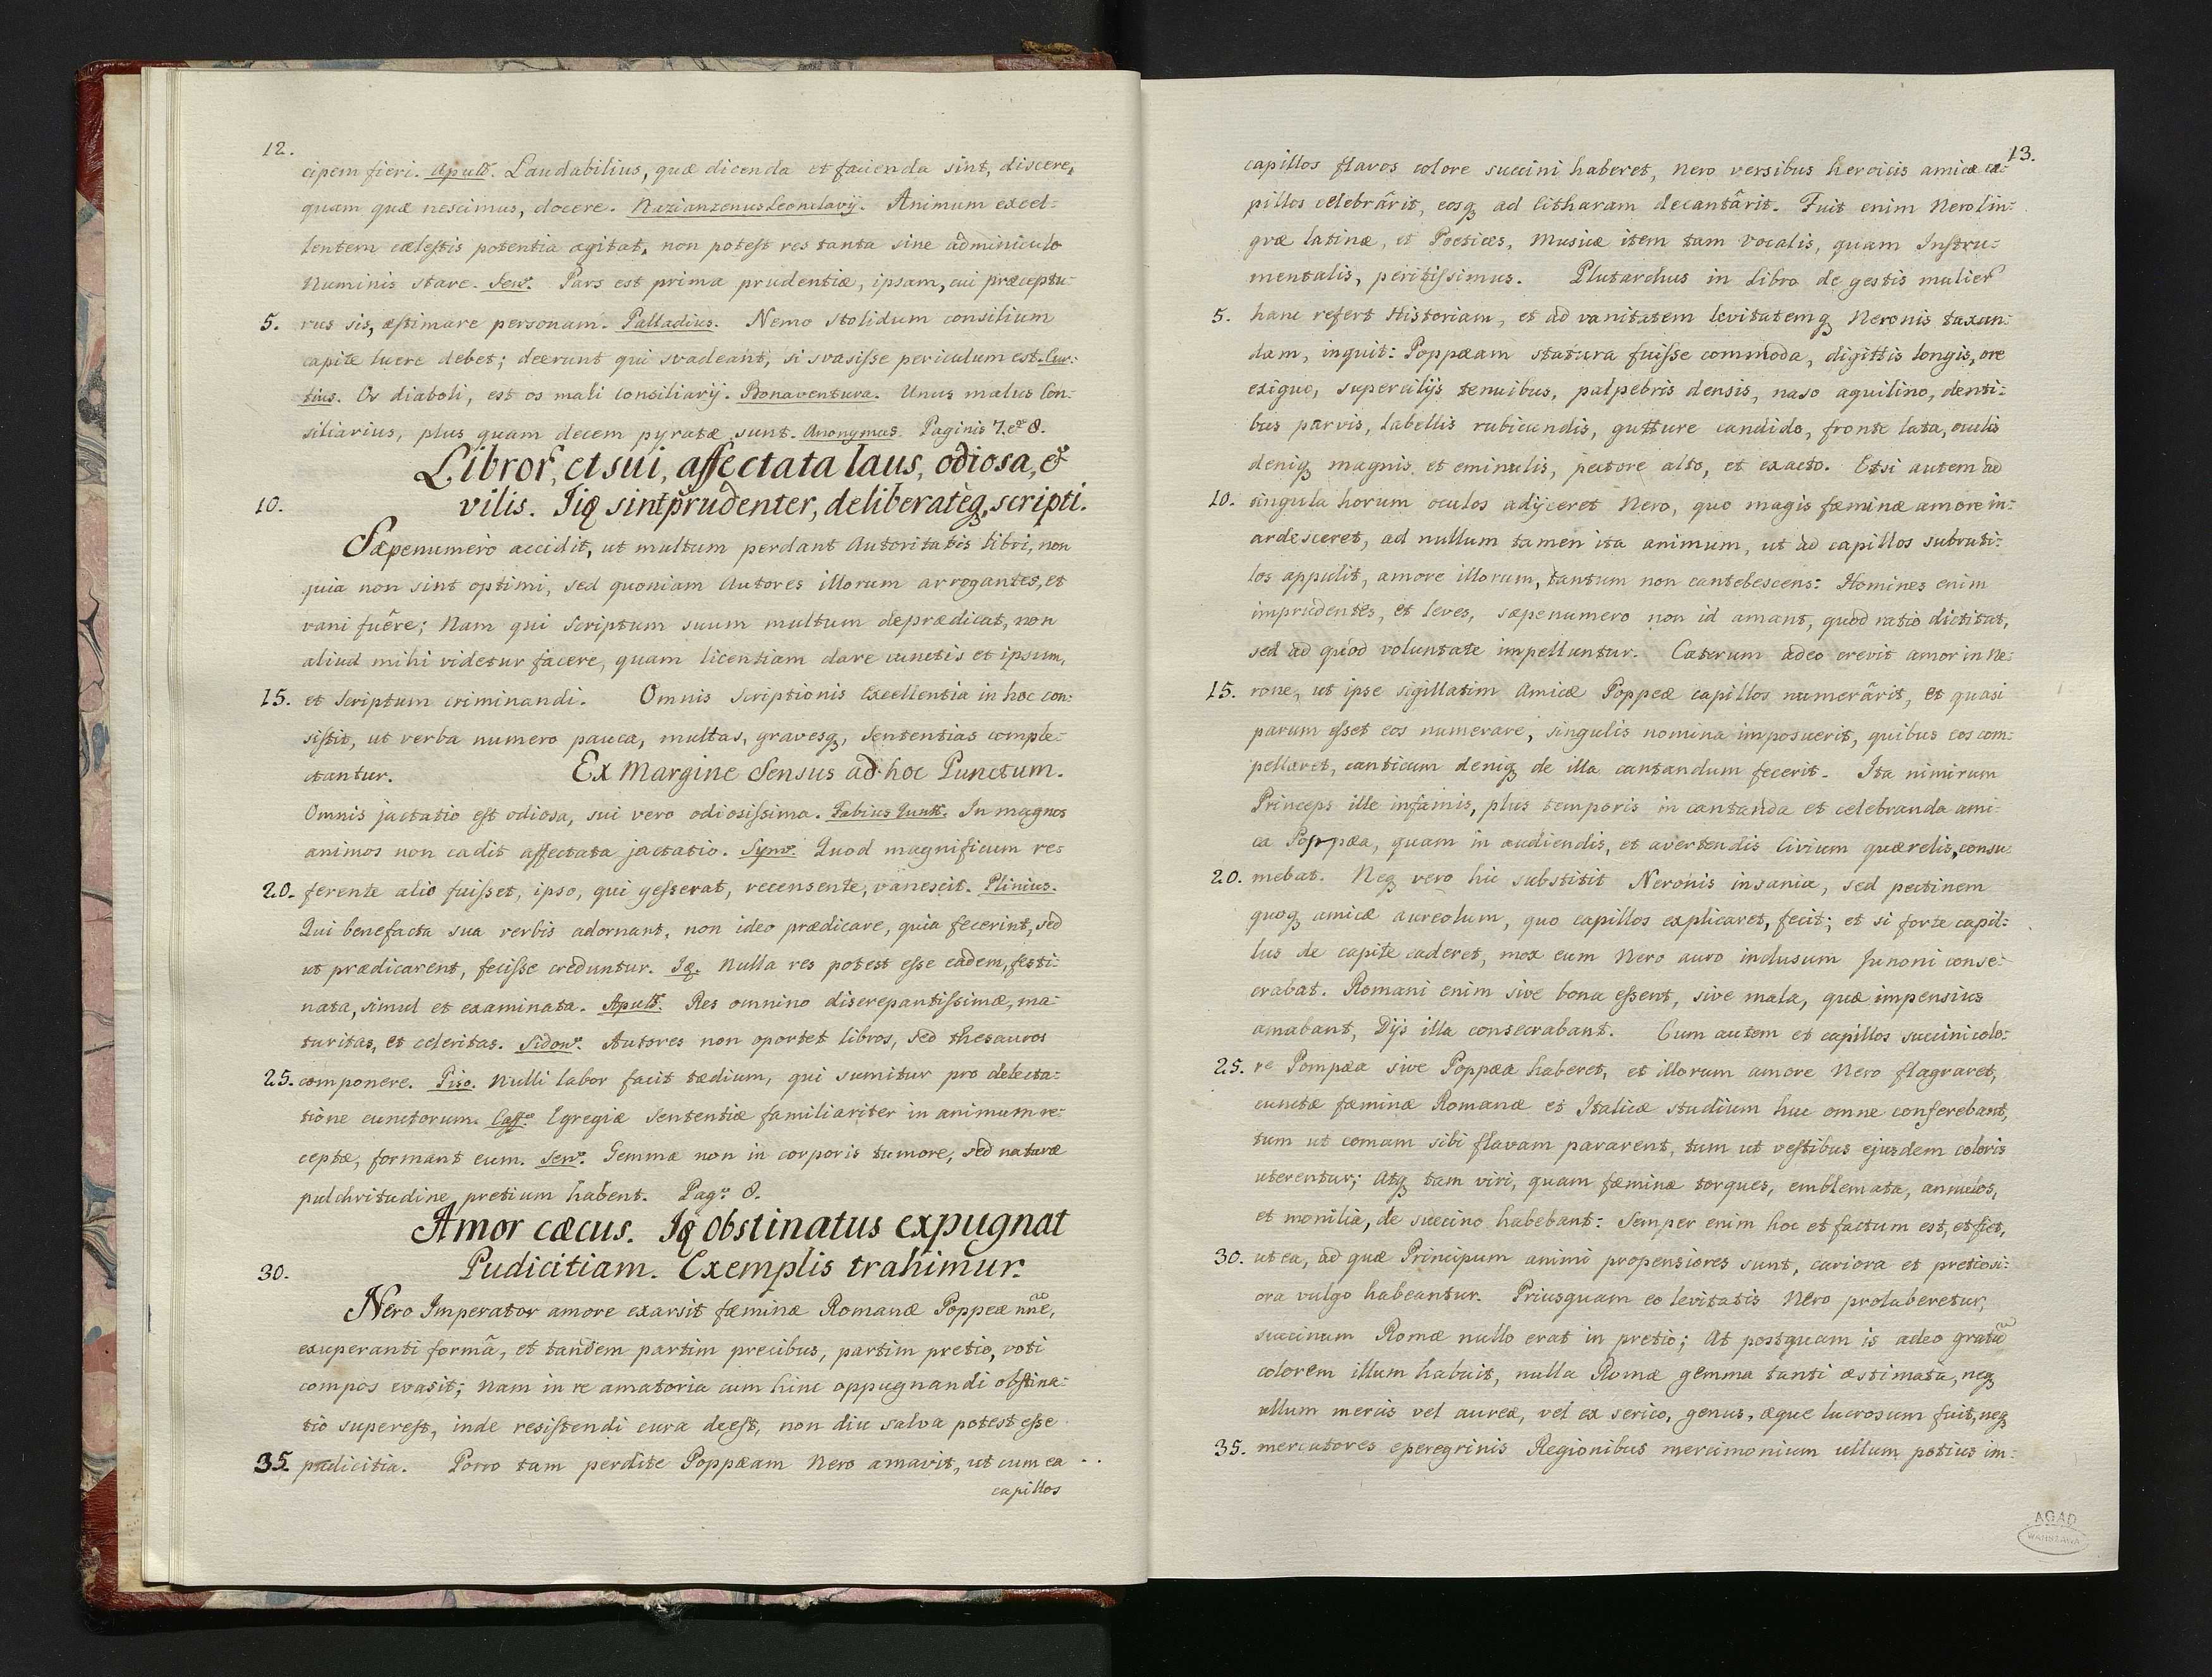 12.
cipem fieri. Apull. Laudabilius, quæ dicenda et facienda sint, discere,
quam quæ nescimus, docere. Nazianzenus Leonclavij. Animum excel-
lentem cælestis potentia agitat, non potest res tanta sine adminiculo
Numinis stare. Sen. Pars est prima prudentiæ, ipsam, cui præceptu-
5. rus sis, æstimare personam. Palladius. Nemo stolidum consilium
capite luere debet; deerunt qui svadeant, si svasisse periculum est. Cur-
tius. Os diaboli, est os mali Consiliarij. Bonaventura. Unus malus Con-
siliarius, plus quam decem pyratæ sunt. Anonymus. Paginis 7. et 8.
Libror, et sui, affectata laus, odiosa, et
10. vilis. Iiq sint prudenter, deliberateq scripti.
Sæpenumero accidit, ut multum perdant Autoritatis libri, non
quia non sint optimi, sed quoniam Autores illorum arrogantes, et
vani fuêre; Nam qui Scriptum suum multum deprædicat, non
aliud mihi videtur facere, quam licentiam dare cunctis et ipsum,
15. et Scriptum criminandi. Omnis Scriptionis Excellentia in hoc con-
sistit, ut verba numero pauca, multas, gravesq, Sententias comple-
ctantur. Ex Margine Sensus ad hoc Punctum.
Omnis jactatio est odiosa, sui vero odiosissima. Fabius Quint. In magnos
animos non cadit affectata jactatio. Sym. Quod magnificum re-
20. ferente alio fuisset, ipso, qui gesserat, recensente, vanescit. Plinius.
Qui benefacta sua verbis adornant, non ideo prædicare, quia fecerint, sed
ut prædicarent, fecisse creduntur. Iq. Nulla res potest esse eadem, festi-
nata, simul et examinata. Apull. Res omnino discrepantissimæ, ma-
turitas, et celeritas. Sidon. Autores non oportet libros, sed thesauros
25. componere. Piso. Nulli labor facit tædium, qui sumitur pro delecta-
tione cunctorum. Cass. Egregiæ Sententiæ familiariter in animum re-
ceptæ, formant eum. Sen. Gemmæ non in corporis tumore, sed naturæ
pulchritudine pretium habent. Pag. 8.
Amor cæcus. Iq Obstinatus expugnat
30. Pudicitiam. Exemplis trahimur.
Nero Imperator amore exarsit fæminæ Romanæ Poppeæ nne,
exuperanti formâ, et tandem partim precibus, partim pretio, voti
compos evasit; Nam in re amatoria cum hinc oppugnandi obstina-
tio superest, inde resistendi cura deest, non diu salva potest esse
35. pudicitia. Porro tam perdite Poppæam Nero amavit, ut cum ea
capillos
13.
capillos flavos colore succini haberet, Nero versibus heroicis amicæ ca-
pillos celebrârit, eosq ad Citharam decantârit. Fuit enim Nero lin-
gvæ latinæ, et Poetices, Musicæ item tam vocalis, quam Instru-
mentalis, peritissimus. Plutarchus in Libro de gestis mulier
5. hanc refert Historiam, et ad vanitatem levitatemq Neronis taxan-
dam, inquit: Poppæam statura fuisse commoda, digittis longis, ore
exiguo, supercilijs tenuibus, palpebris densis, naso aquilino, denti-
bus parvis, labellis rubicundis, gutture candido, fronte lata, oculis
deniq magnis et eminulis, pectore alto, et exacto. Etsi autem ad
10. singula horum oculos adijceret Nero, quo magis fæminæ amore in-
ardesceret, ad nullum tamen ita animum, ut ad capillos subruti-
los appulit, amore illorum, tantum non contebescens: Homines enim
imprudentes, et leves, sæpenumero non id amant, quod ratio dictitat,
sed ad quod voluntate impelluntur. Cæterum adeo crevit amor in Ne-
15. rone, ut ipse sigillatim Amicæ Poppeæ capillos numerârit, et quasi
parum esset eos numerare, singulis nomina imposuerit, quibus eos com-
pellaret, canticum deniq de illa cantandum fecerit. Ita nimirum
Princeps ille infamis, plus temporis in cantanda et celebranda ami-
ca Poppæa, quam in audiendis, et avertendis Civium quærelis, consu-
20. mebat. Neq vero hic substitit Neronis insania, sed pectinem
quoq amicæ aureolum, quo capillos explicaret, fecit; et si forte capil-
lus de capite caderet, mox eum Nero auro inclusum Junoni conse-
crabat. Romani enim sive bona essent, sive mala, quæ impensius
amabant, Dijs illa consecrabant. Cum autem et capillos succini colo-
25. re Pompæa sive Poppæa haberet, et illorum amore Nero flagraret,
cunctæ fæminæ Romanæ et Italicæ studium huc omne conferebant,
tum ut comam sibi flavam pararent, tum ut vestibus ejusdem coloris
uterentur; Atq tam viri, quam fæminæ torques, emblemata, annulos,
et monilia, de succino habebant: Semper enim hoc et factum est, et fiet,
30. ut ea, ad quæ Principum animi propensiores sunt, cariora et pretiosi-
ora vulgo habeantur. Priusquam eo levitatis Nero prolaberetur,
succinum Romæ nullo erat in pretio; At postquam is adeo gratu
colorem illum habuit, nulla Romæ gemma tanti æstimata, neq
ullum mercis vel aureæ, vel ex serico, genus, æque lucrosum fuit, neq
35. mercatores e peregrinis Regionibus mercimonium ullum potius im-
AGAD
WARSZAWA